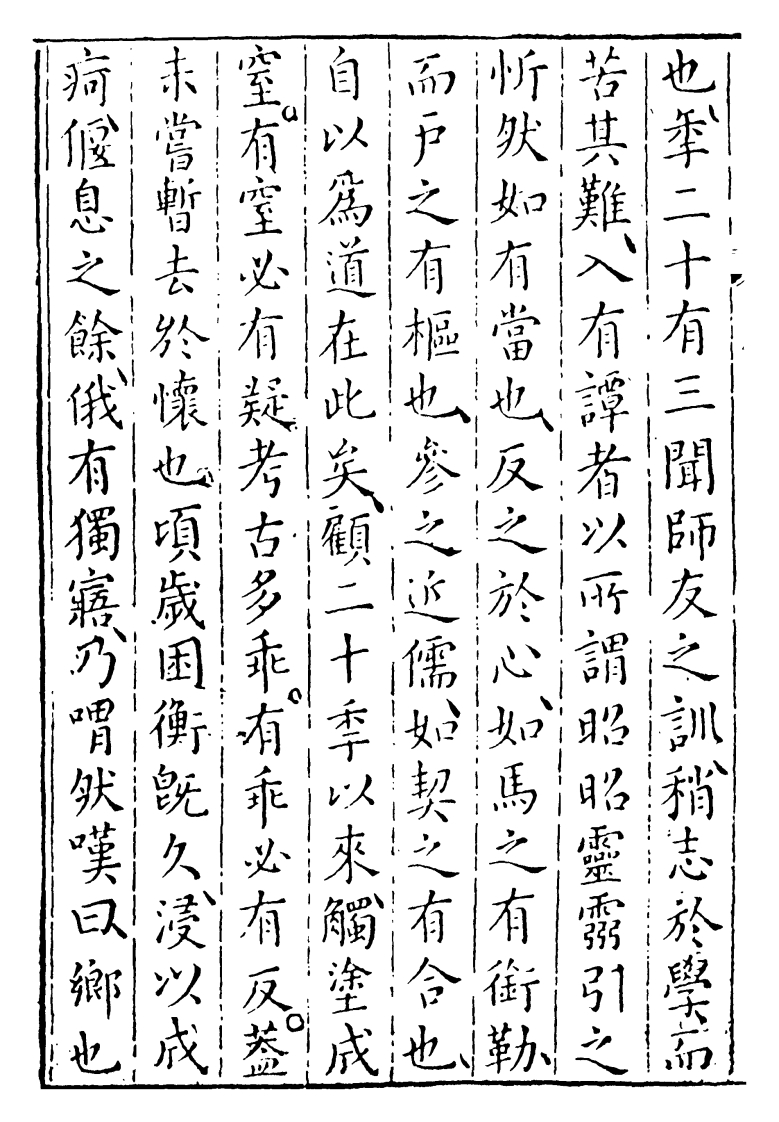 也、秊二十有三聞師友之訓、稍志於學而
苦其難、入有譚者以所謂昭昭靈靈引之
忻然如有當也、反之於心、如馬之有銜勒、
而戶之有樞也、參之近儒、如契之有合也、
自以爲道在此矣、顧二十秊以來、觸塗成
窒。有窒必有疑、考古多乖。有乖必有反。葢
未嘗暫去於懷也。頃歲困衡旣久、浸以成
痾、偃息之餘、俄有獨寤、乃喟然嘆曰鄉也